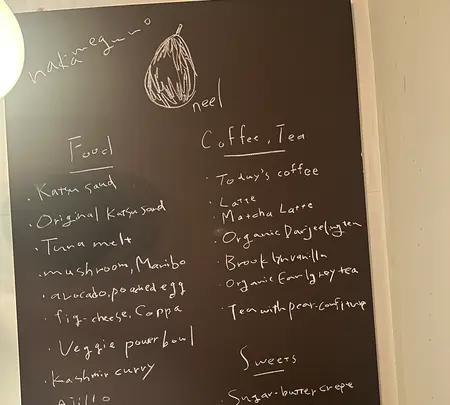 nakameguro
neel
Food
· Katsu sand
· Original Katsu sand
· Tuna melt
· mushroom, Maribo
· avocado, poached egg
· fig-cheese, Coppa
· Veggie power bowl
· Kashmir curry
Ajillo
Coffee, Tea
· Today's coffee
· Latte
· Matcha Latte
· Organic Darjeeling tea
· Brooklyn vanilla
· Organic Earlgrey tea
· Tea with pear-confiture
Sweets
· Sugar-butter crepe